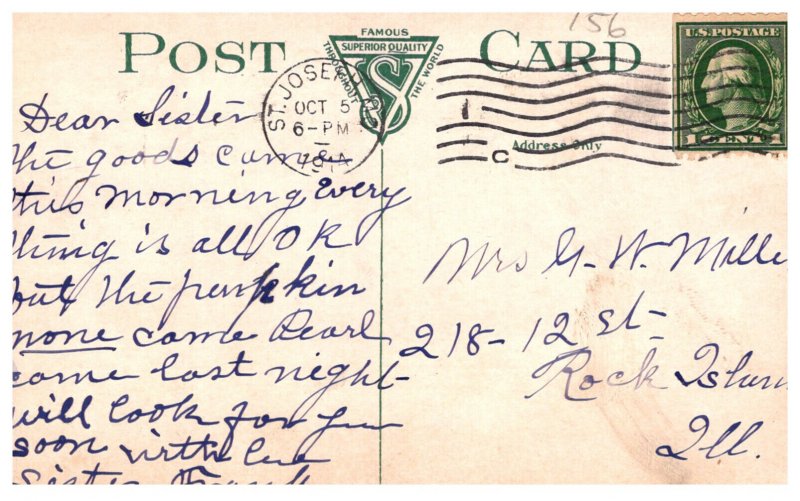 156
POST CARD
FAMOUS
SUPERIOR QUALITY
THROUGHOUT THE WORLD
S
ST. JOSEPH
OCT 5
6-PM
U.S. POSTAGE
1 CENT 1
C
Address Only
Dear Sister
the goods came
this morning Every
thing is all OK
but the pumpkin
none come Pearl
come last night
will look for you
soon with love
Sister
Mrs G. W. Mille
218-12 St-
Rock Islan
Ill.